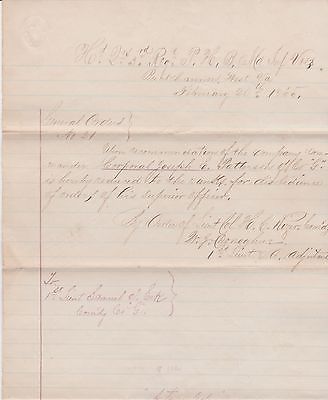 Hd Qrs 3rd Regt P. H. B. Md Inf Vols
West Va
February 26th 1865.
General Orders
No 21
Upon recommendation of the company com
mander Corporal Joseph C. Potter of Co "G"
is hereby reduced to the ranks, for disobedience
of orders, of his superior officer.
By Order of Lieut Col. H. C.
1st Lieut & A. Adjutant
To
1st Lieut Samuel
Comdg Co "G"